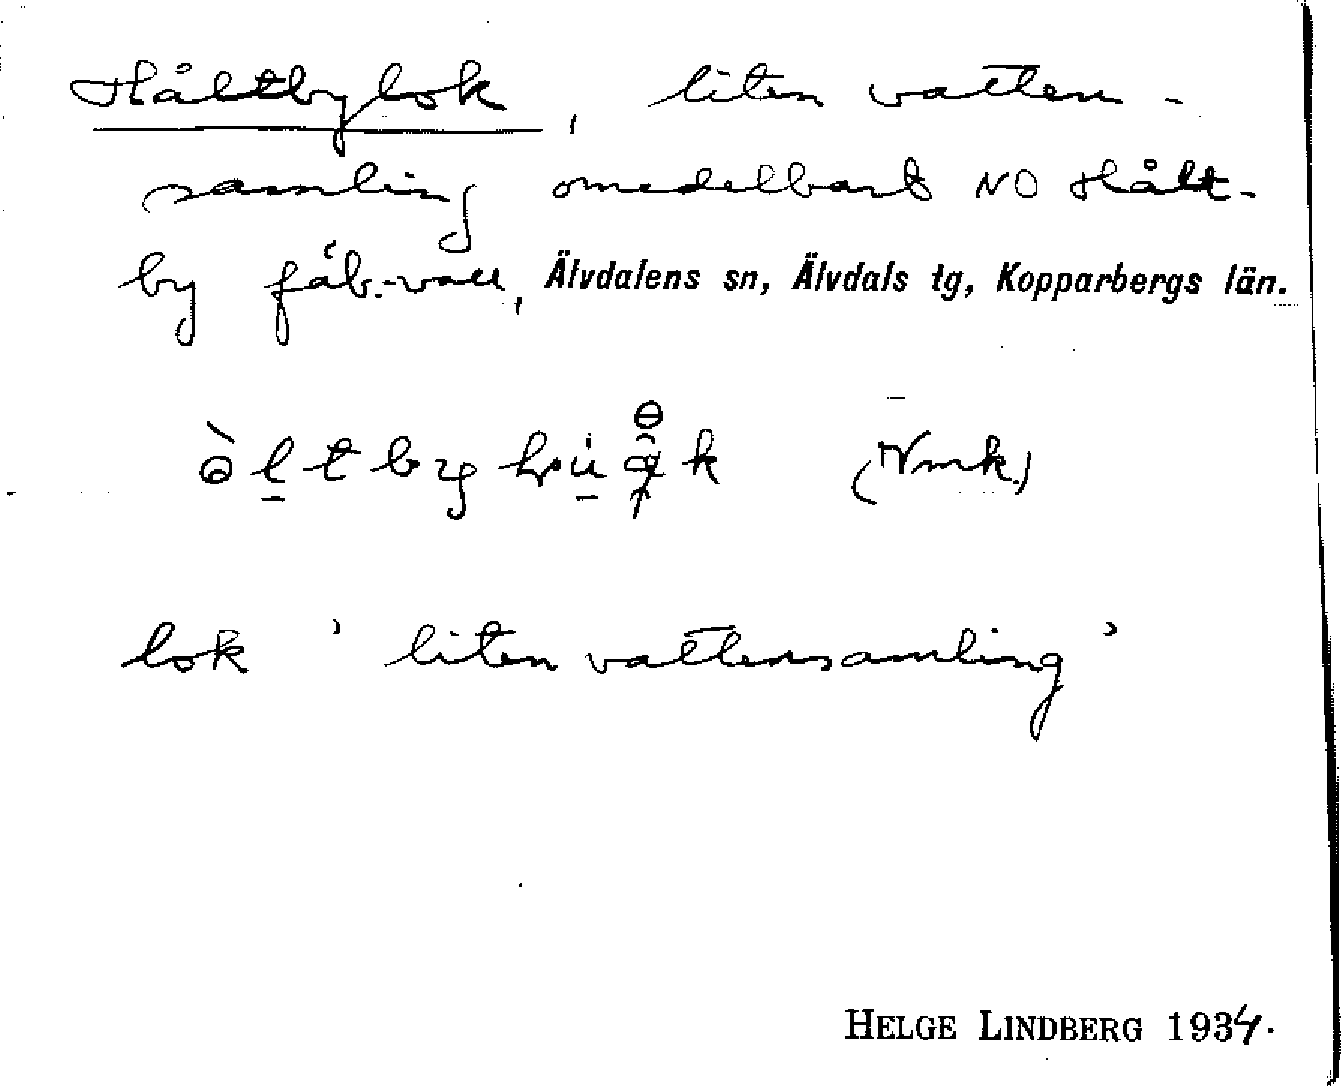 Håltbylok, liten vatten-
samling omedelbart NO Hålt-
by fäb.-vall, Älvdalens sn, Älvdals tg, Kopparbergs län.
(Nmk.)
lok 'liten vattensamling'
HELGE LINDBERG 1934.